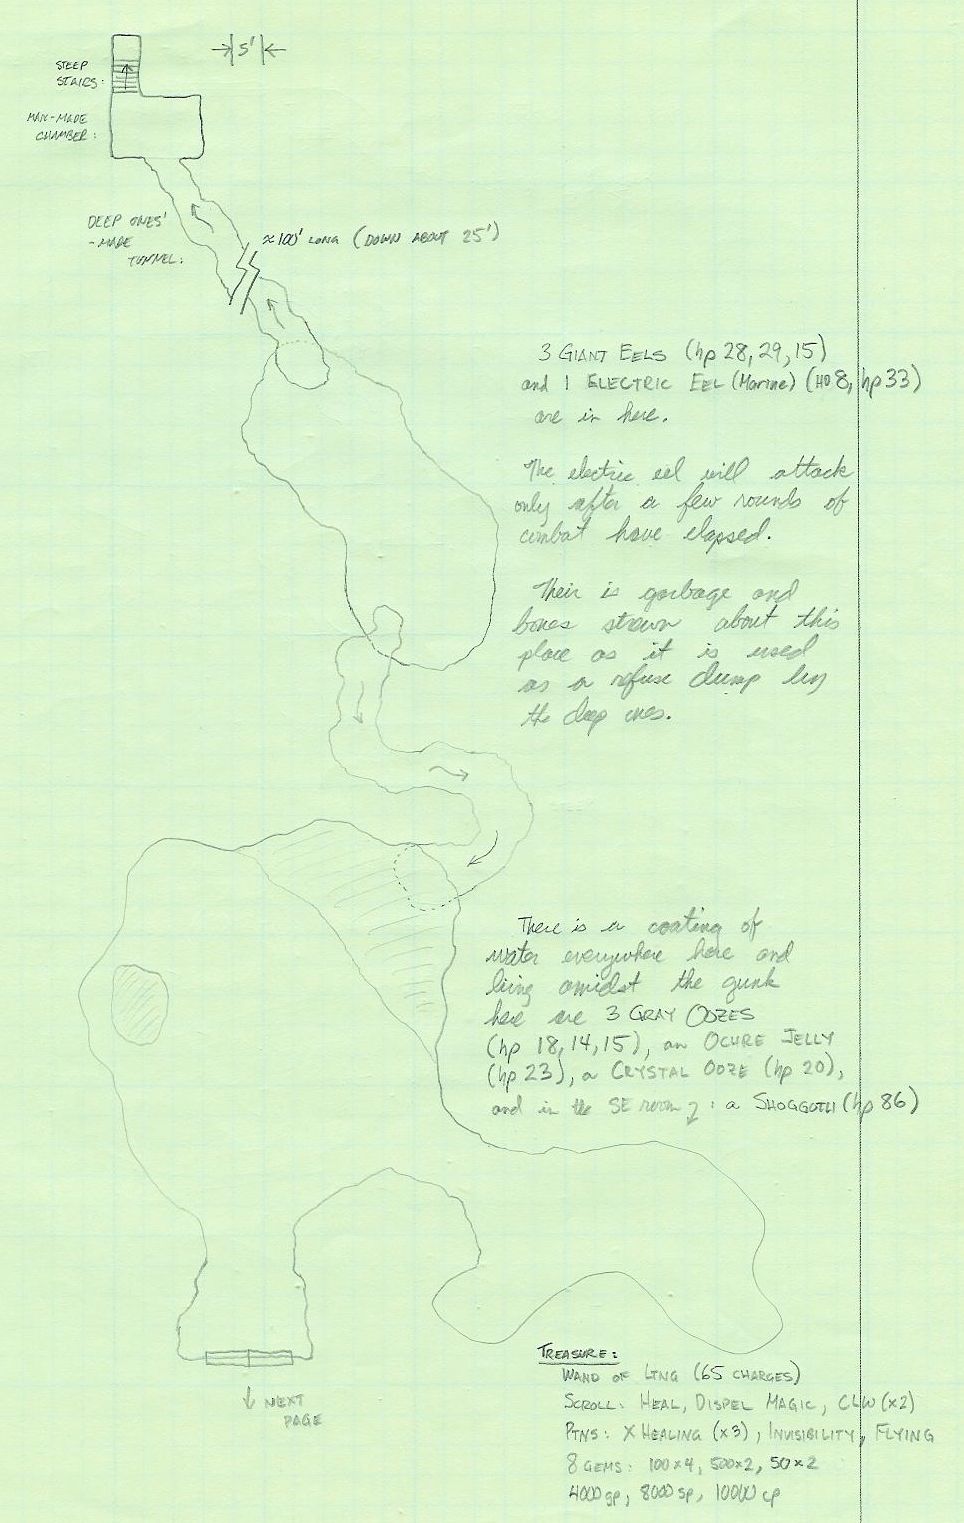 5'
STEEP
STAIRS:
MAN-MADE
CHAMBER:
DEEP ONES'
-MADE
TUNNEL:
≈100' LONG (DOWN ABOUT 25')
3 GIANT EELS (hp 28, 29, 15)
and 1 ELECTRIC EEL (Marine) (HD 8, hp 33)
are in here.
The electric eel will attack
only after a few rounds of
combat have elapsed.
Their is garbage and
bones strewn about this
place as it is used
as a refuse dump by
the deep ones.
There is a coating of
water everywhere here and
living amidst the gunk
here are 3 GRAY OOZES
(hp 18, 14, 15), an OCHRE JELLY
(hp 23), a CRYSTAL OOZE (hp 20),
and in the SE room: a SHOGGOTH (hp 86)
TREASURE:
WAND OF LTNG (65 CHARGES)
SCROLL: HEAL, DISPEL MAGIC, CLW (x2)
PTNS: X HEALING (x3), INVISIBILITY, FLYING
8 GEMS: 100x4, 500x2, 50x2
4000 gp, 8000 sp, 10000 cp
↓ NEXT
PAGE